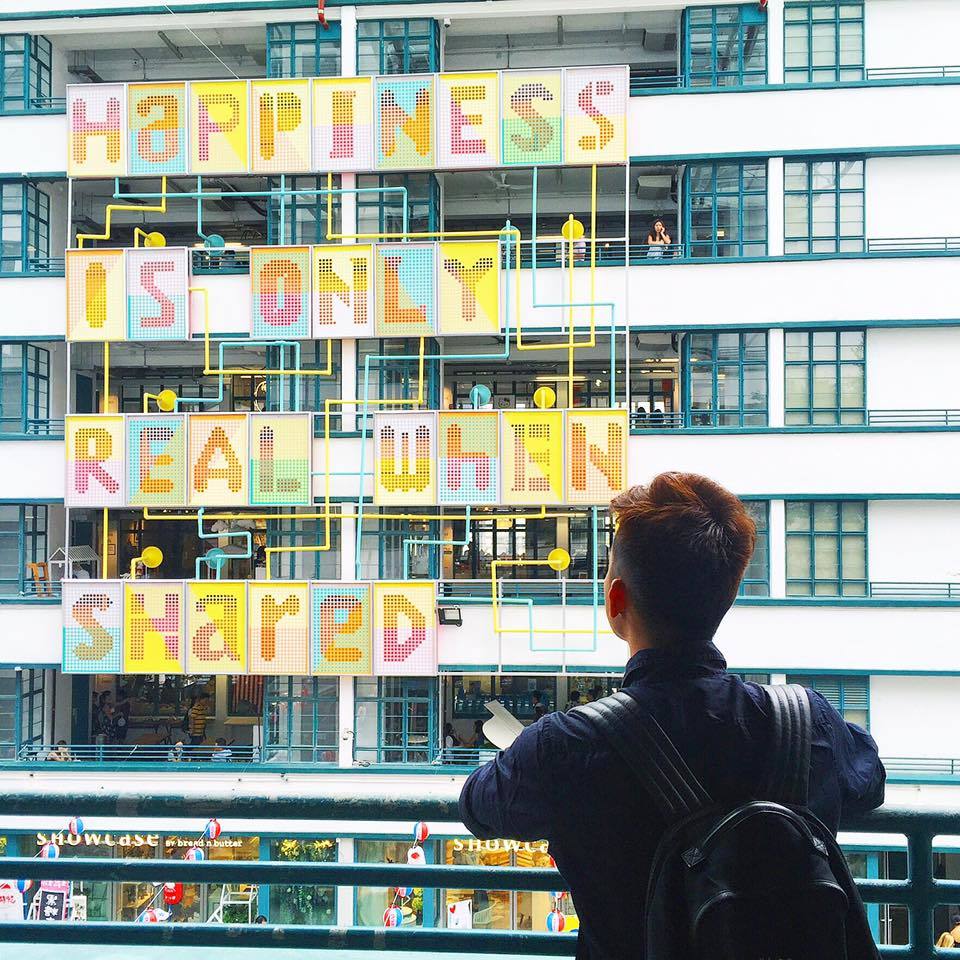 HaPPINESS
IS ONLY
REAL WHEN
SHaReD
SHOWCASE BY bread n butter
SHOWCA